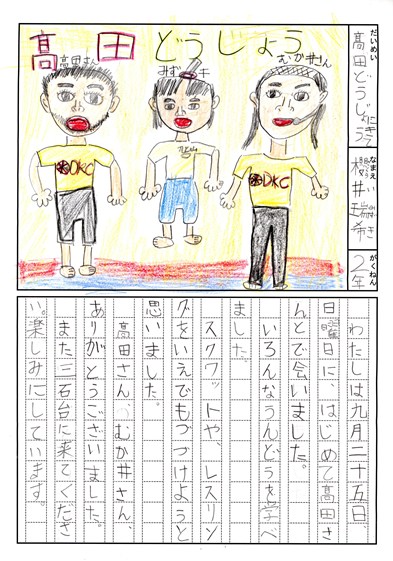 高田どうじょう
高田さん
みずキ
むか井さん
DKC
DKC
だいめい
高田どうじょう
なまえ
櫻井瑞希
がくねん
2年
わたしは九月二十五日、
日曜日に、はじめて高田さ
んとで会いました。
いろんなうんどうを学べ
ました。
スクワットや、レスリン
グをいえでもつづけようと
思いました。
高田さん、むか井さん、
ありがとうございました。
また三石台に来てくださ
い。楽しみにしています。